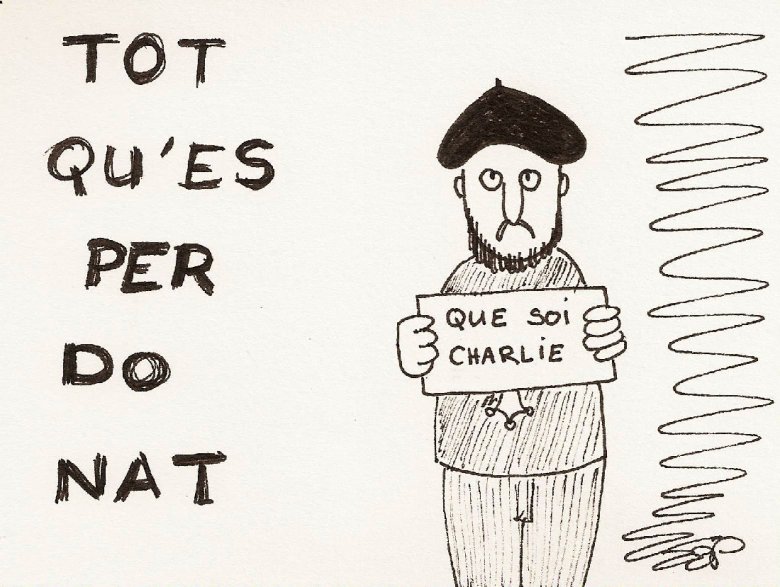 TOT
QU'ES
PER
DO
NAT
QUE SOI
CHARLIE